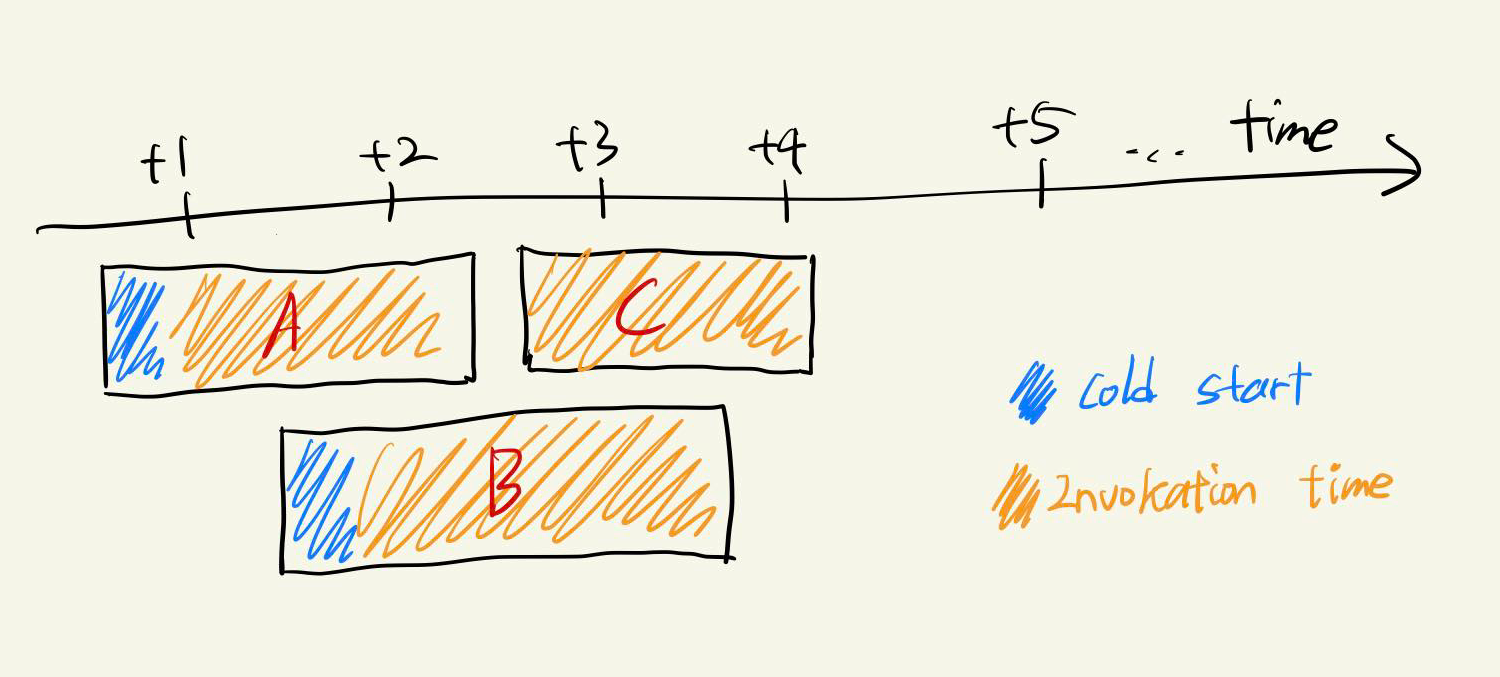 +1 +2 +3 +4 +5 ... time
A C
B
cold start
Invokation time